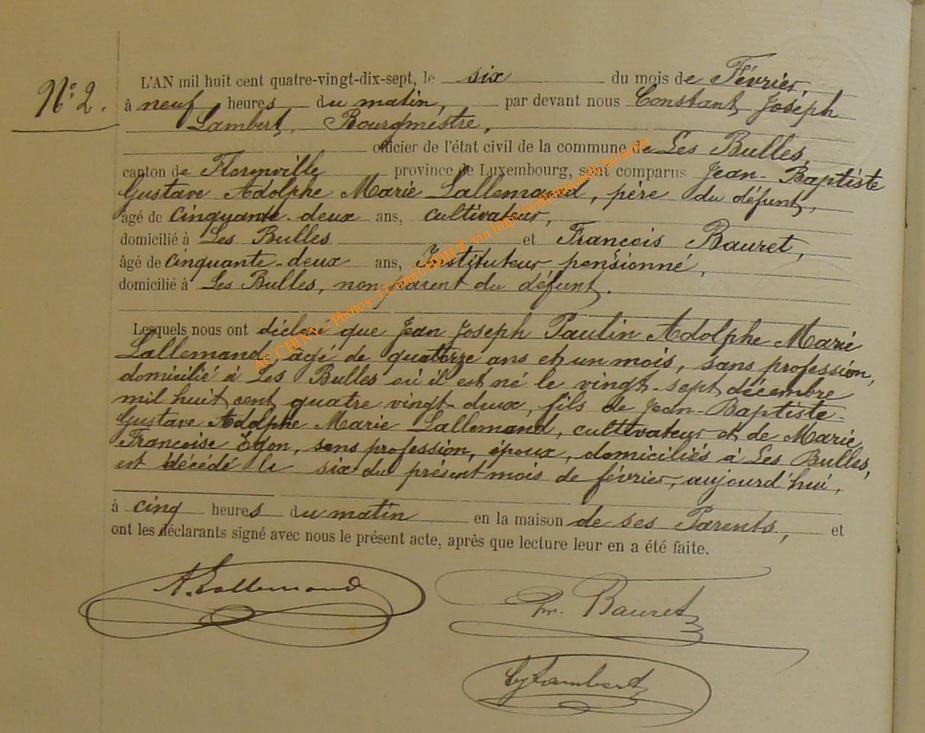 N° 2.
L'AN mil huit cent quatre-vingt-dix-sept, le six du mois de Février,
à neuf heures du matin, par devant nous Constant Joséph
Lambert, Bourgmestre,
officier de l'état civil de la commune de Les Bulles,
canton de Florenville province de Luxembourg, sont comparus Jean-Baptiste
Gustave Adolphe Marie Lallemand, père du défunt,
âgé de cinquante-deux ans, cultivateur,
domicilié à Les Bulles et François Bauret,
âgé de cinquante-deux ans, Instituteur pensionné,
domicilié à Les Bulles, non parent du défunt.
Lesquels nous ont déclaré que Jean Joseph Paulin Adolphe Marie
Lallemand, âgé de quatorze ans et un mois, sans profession,
domicilié à Les Bulles où il est né le vingt-sept décembre
mil huit cent quatre vingt-deux, fils de Jean-Baptiste
Gustave Adolphe Marie Lallemand, cultivateur et de Marie
Françoise sans profession, époux, domiciliés à Les Bulles,
est décédé le six du présent mois de février, aujourd'hui,
à cinq heures du matin en la maison de ses Parents, et
ont les déclarants signé avec nous le présent acte, après que lecture leur en a été faite.
A. Lallemand
Fr. Bauret
Cj Lambert
AC CHINY - Photos: